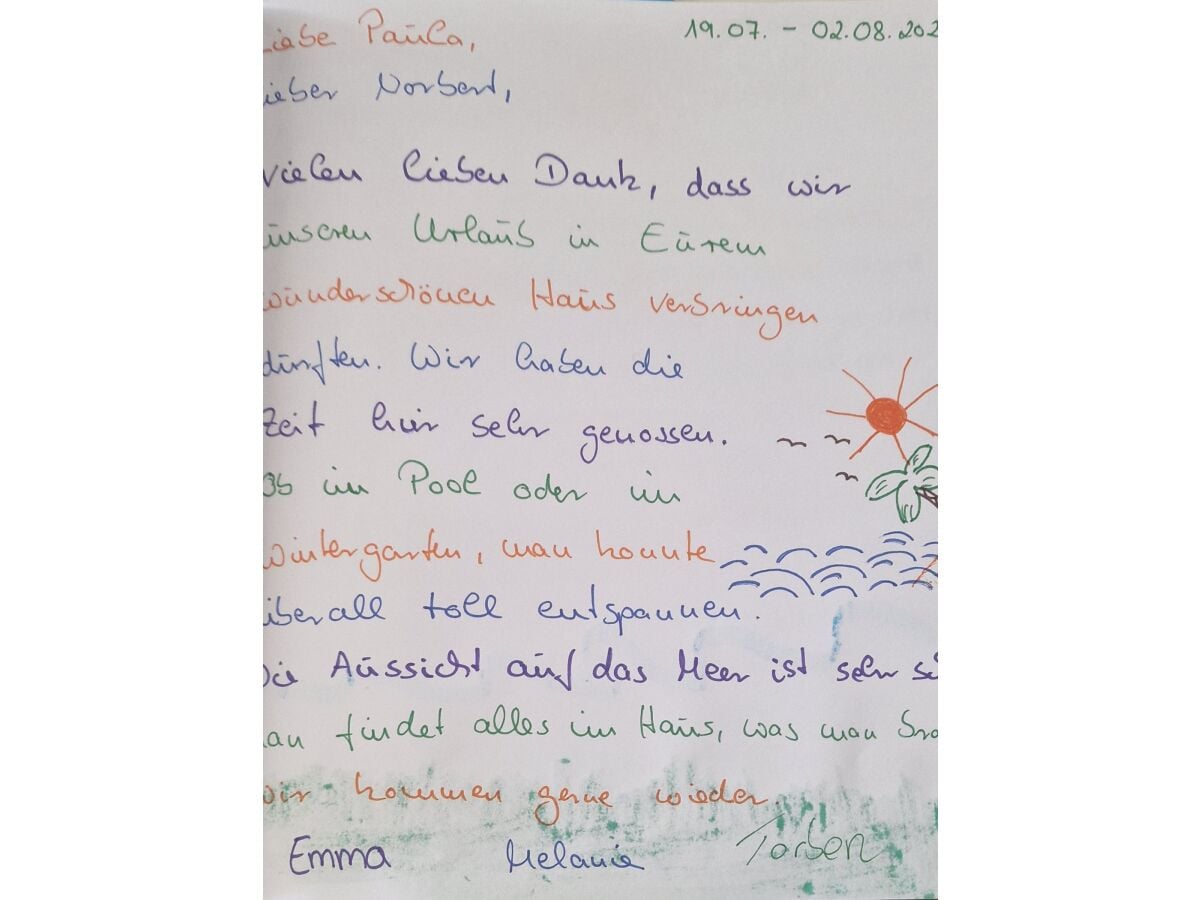 Liebe Paula,
19.07. - 02.08.202
lieber Norbert,
vielen lieben Dank, dass wir
unseren Urlaub in Eurem
wunderschönen Haus verbringen
durften. Wir haben die
Zeit hier sehr genossen.
Ob im Pool oder im
Wintergarten, man konnte
überall toll entspannen.
Die Aussicht auf das Meer ist sehr
an findet alles im Haus, was man
wir kommen gerne wieder.
Emma Melanie Torben